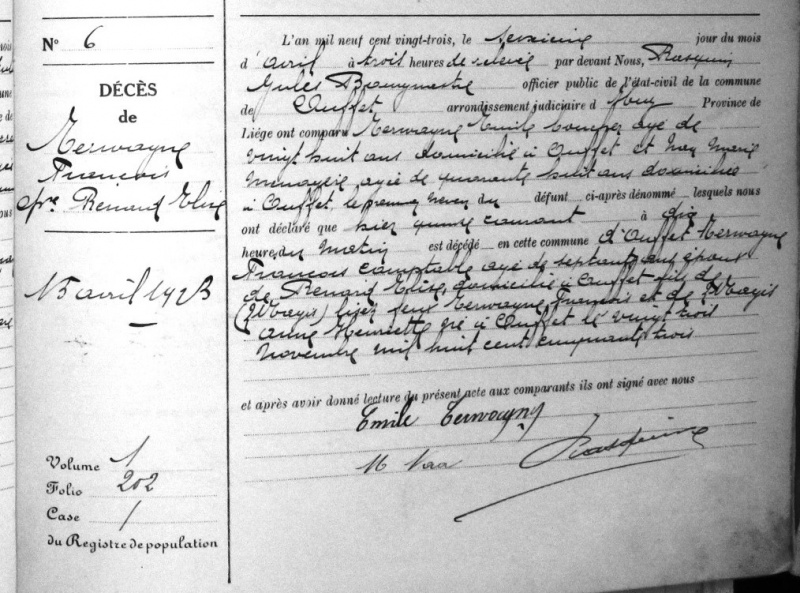 N° 6
DÉCÈS
de
Terwayne
François
Renard Elise
15 avril 1923
Volume 1
Folio 202
Case 1
du Registre de population
L'an mil neuf cent vingt-trois, le seizième jour du mois
d'avril à trois heures de relevée par devant Nous, Rasquin
Jules Bourgmestre officier public de l'état-civil de la commune
de Ouffet arrondissement judiciaire d Huy Province de
Liége ont comparu Terwayne Emile agé de
vingt huit ans domicilié à Ouffet et Marie
Ménagère agée de quarante huit ans domiciliée
à Ouffet le premier neveu du défunt ci-après dénommé lesquels nous
ont déclaré que hier quinze courant à dix
heures du matin est décédé en cette commune d'Ouffet Terwayne
François comptable agé de septante ans époux
de Renard Elise domicilié à Ouffet fils de
lisez feu Terwayne François et de
Anne Henriette né à Ouffet le vingt trois
novembre mil huit cent cinquante trois
et après avoir donné lecture du présent acte aux comparants ils ont signé avec nous
Emile Terwayne
Rasquin